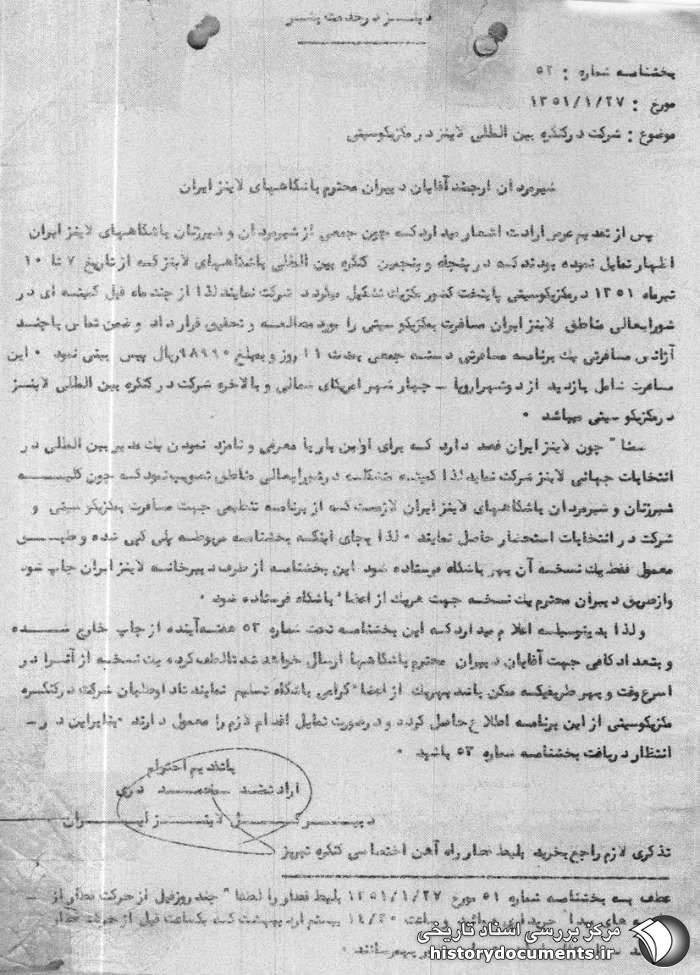 دبیر در خدمت بشر
بخشنامه شماره : ۵۲
مورخ : ۱۳۵۱/۱/۲۷
موضوع : شرکت در کنگره بین المللی لاینز در مکزیکوسیتی
شیرمردان ارجمند آقایان دبیران محترم باشگاههای لاینز ایران
پس از تقدیم عرض ارادت اشعار میدارد که چون جمعی از شیرمردان و شیرزنان باشگاههای لاینز ایران
اظهار تمایل نموده بودند که در پنجاه و پنجمین کنگره بین المللی باشگاههای لاینز که از تاریخ ۷ تا ۱۰
تیرماه ۱۳۵۱ در مکزیکوسیتی پایتخت کشور مکزیک تشکیل میگردد شرکت نمایند لذا از چند ماه قبل کمیته ای در
شورایعالی مناطق لاینز ایران مسافرت بمکزیکوسیتی را مورد مطالعه و تحقیق قرار داد و ضمن تماس با چند
آژانس مسافرتی یک برنامه مسافرتی دسته جمعی بمدت ۱۱ روز و بمبلغ ۹۸۹۹۰ ریال پیش بینی نمود ۰ این
مسافرت شامل بازدید از دو شهر اروپا – چهار شهر امریکای شمالی و بالاخره شرکت در کنگره بین المللی لاینز
در مکزیکوسیتی میباشد ۰
ضمنا" چون لاینز ایران قصد دارد که برای اولین بار با معرفی و نامزد نمودن یک مدیر بین المللی در
انتخابات جهانی لاینز شرکت نماید لذا کمیته متشکله در شورایعالی مناطق تصویب نمود که چون کلیه
شیرزنان و شیرمردان باشگاههای لاینز ایران لازمست که از برنامه تنظیمی جهت مسافرت بمکزیکوسیتی و
شرکت در انتخابات استحضار حاصل نمایند ۰ لذا بجای اینکه بخشنامه مربوطه پلی کپی شده و طبق
معمول فقط یک نسخه آن بهر باشگاه فرستاده شود این بخشنامه از طرف دبیرخانه لاینز ایران چاپ شود
و از طریق دبیران محترم یک نسخه جهت هریک از اعضاء باشگاه فرستاده شود ۰
ولذا بدینوسیله اعلام میدارد که این بخشنامه تحت شماره ۵۳ هفته آینده از چاپ خارج شده
و بتعداد کافی جهت آقایان دبیران محترم باشگاهها ارسال خواهد شد تا لطف کرده یک نسخه از آنرا در
اسرع وقت و بهر طریقیکه ممکن باشد بهریک از اعضاء گرامی باشگاه تسلیم نمایند تا داوطلبان شرکت در کنگره
مکزیکوسیتی از این برنامه اطلاع حاصل کرده و در صورت تمایل اقدام لازم را معمول دارند ۰ بنابراین در –
انتظار دریافت بخشنامه شماره ۵۳ باشید ۰
با تقدیم احترام
ارادتمند دری
دبیر کل لاینز ایران
تذکری لازم راجع بخرید بلیط قطار راه آهن اختصاصی کنگره تبریز
عطف به بخشنامه شماره ۵۱ مورخ ۱۳۵۱/۱/۲۷ بلیط قطار را لطفا" چند روز قبل از حرکت قطار از
خریداری فرمائید و ساعت ۱۴/۳۰ بیستم اردیبهشت که یکساعت قبل از حرکت قطار
بهم رسانند ۰
مرکز بررسی اسناد تاریخی
historydocuments.ir